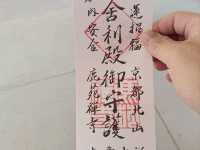 運招福 京都北山
舍利殿御守護
内安全 鹿苑禅寺